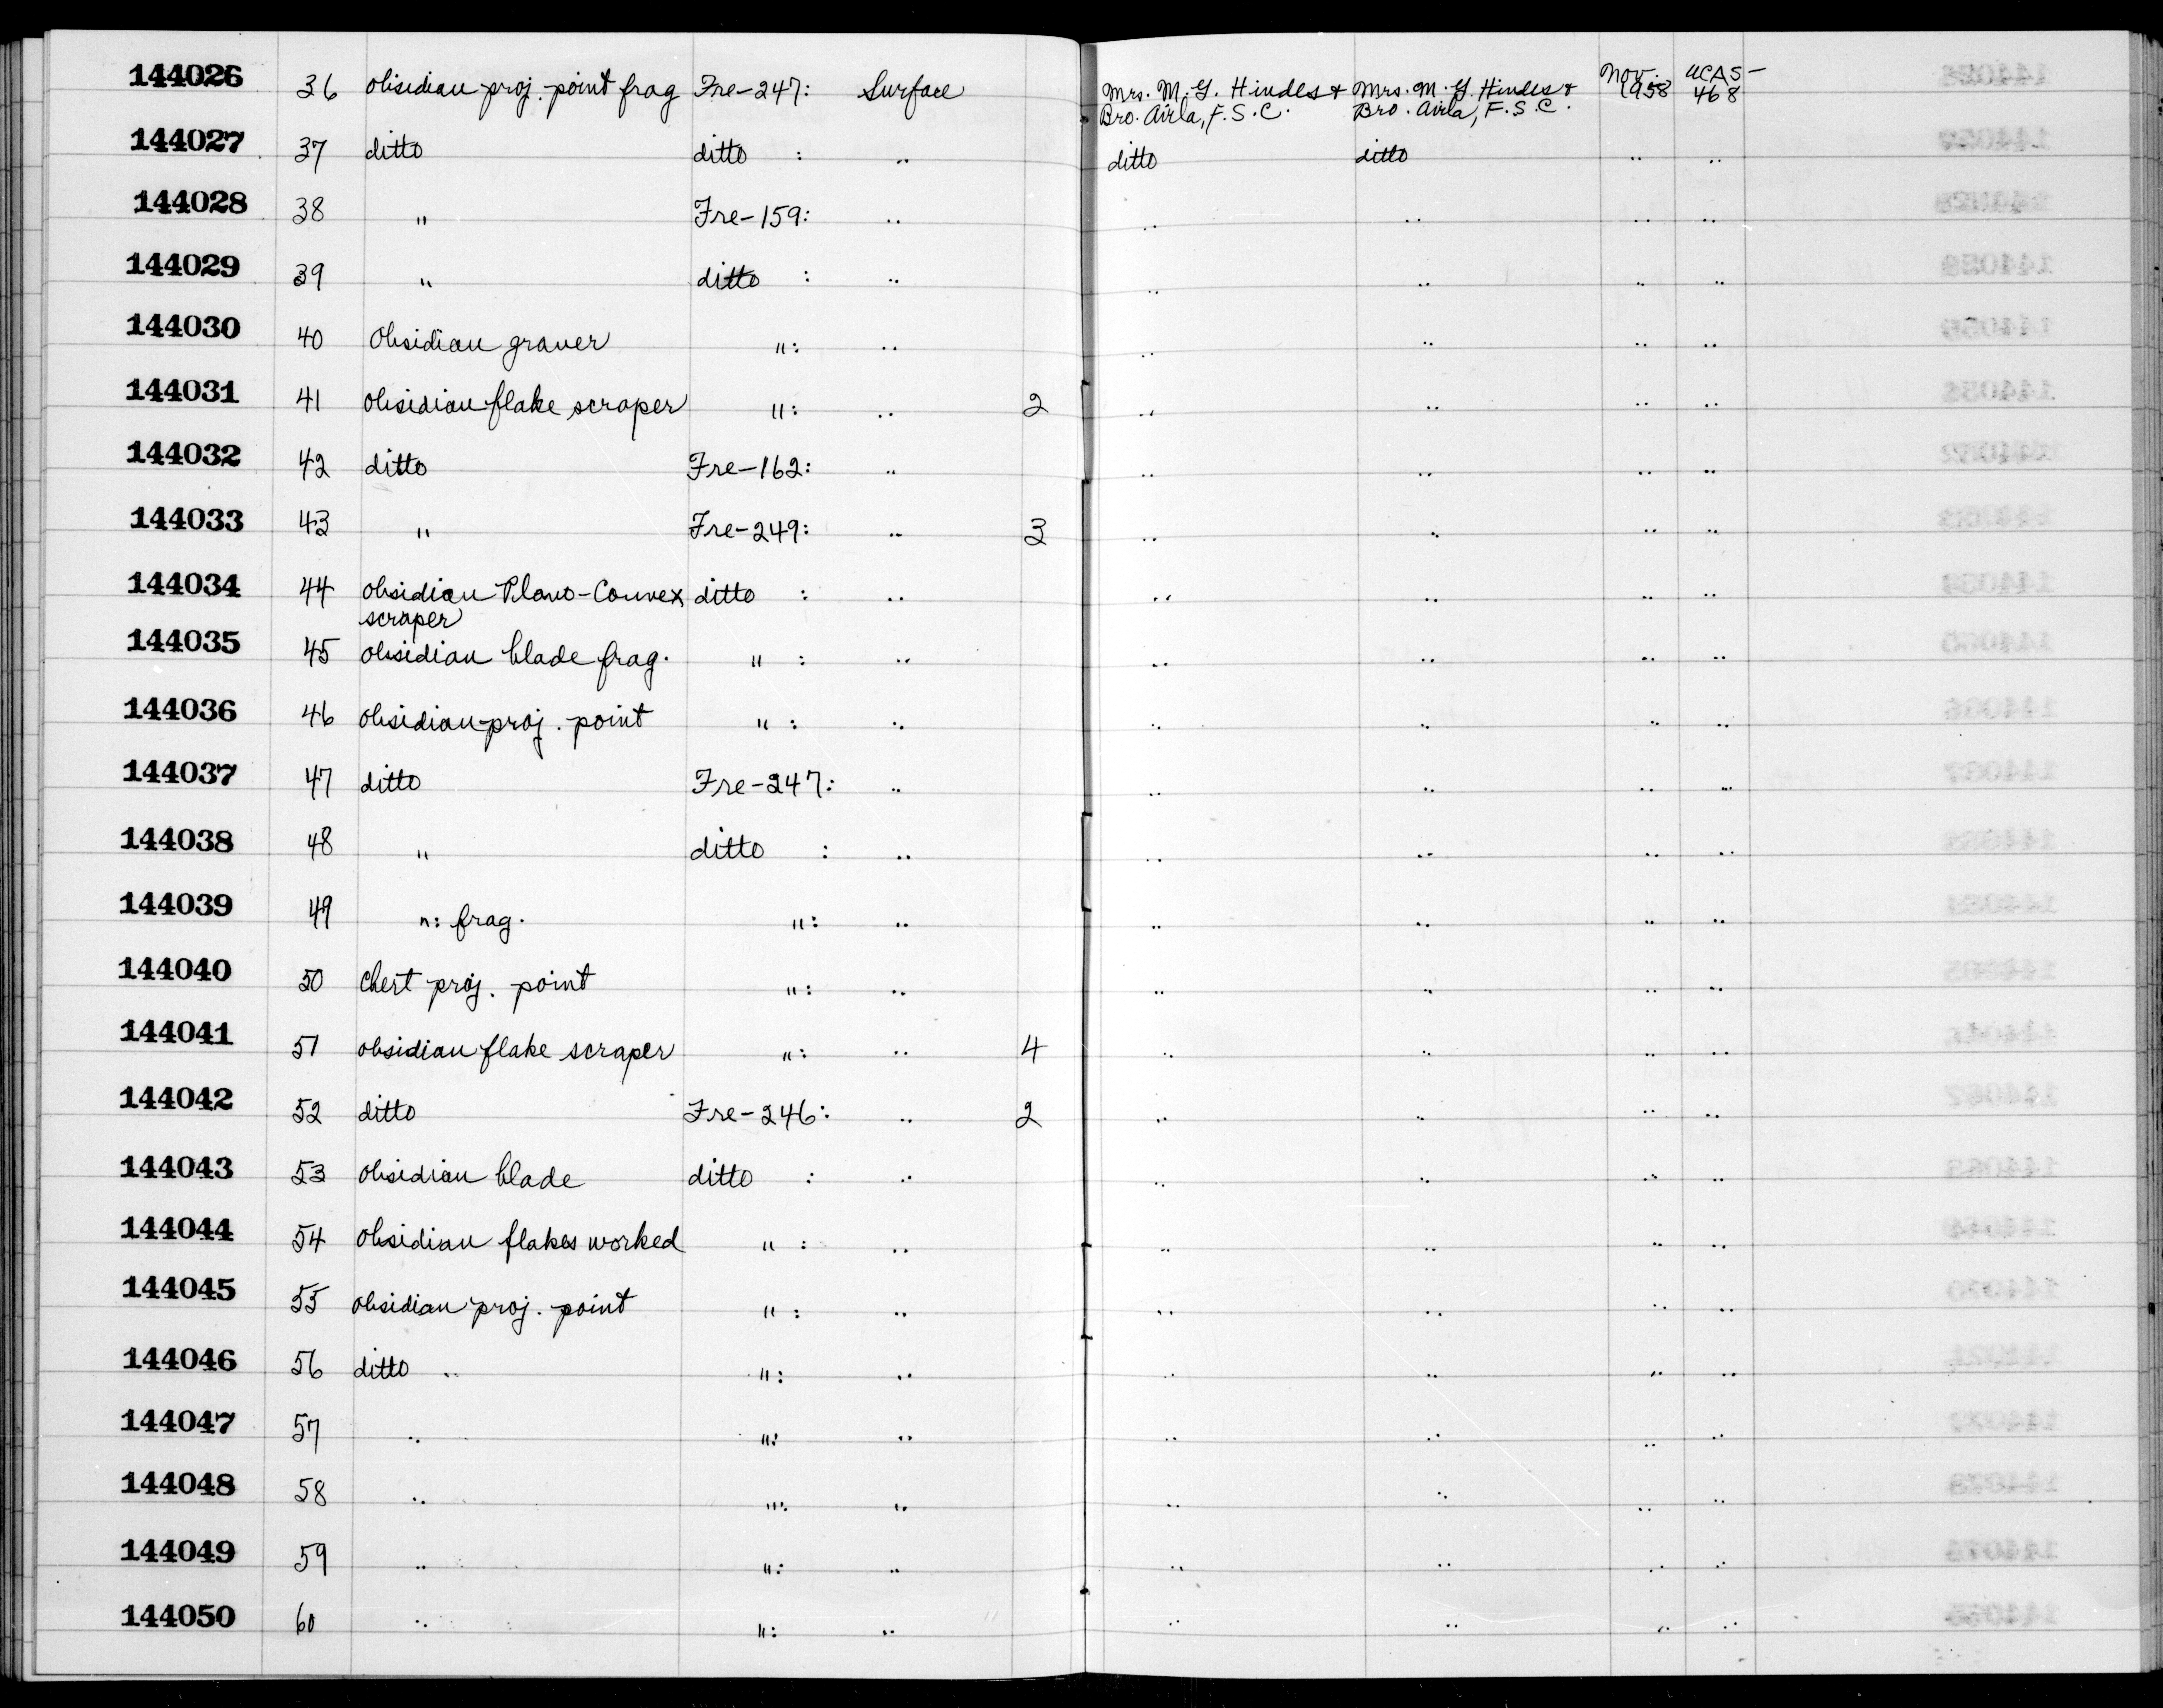 144026 36 obsidian proj. point frag Fre-247: Surface Mrs. M. G. Hindes + Mrs. M. G. Hindes + Nov. 1958 UCAS-468
Bro. Airla, F.S.C. Bro. Airla, F.S.C.
144027 37 ditto ditto : .. ditto ditto .. ..
144028 38 " Fre-159: .. .. .. .. ..
144029 39 " ditto : .. .. .. .. ..
144030 40 Obsidian graver ": .. .. .. .. ..
144031 41 obsidian flake scraper ": .. 2 .. .. .. ..
144032 42 ditto Fre-162: .. .. .. .. ..
144033 43 " Fre-249: .. 3 .. .. .. ..
144034 44 obsidian Plano-Convex ditto : .. .. .. .. ..
scraper
144035 45 obsidian blade frag. " : .. .. .. .. ..
144036 46 obsidian proj. point " : .. .. .. .. ..
144037 47 ditto Fre-247: .. .. .. .. ..
144038 48 " ditto : .. .. .. .. ..
144039 49 ": frag. ": .. .. .. .. ..
144040 50 Chert proj. point ": .. .. .. .. ..
144041 51 obsidian flake scraper ": .. 4 .. .. .. ..
144042 52 ditto Fre-246: .. 2 .. .. .. ..
144043 53 obsidian blade ditto : .. .. .. .. ..
144044 54 obsidian flakes worked " : .. .. .. .. ..
144045 55 obsidian proj. point " : .. .. .. .. ..
144046 56 ditto .. ": .. .. .. .. ..
144047 57 .. ": .. .. .. .. ..
144048 58 .. ": .. .. .. .. ..
144049 59 .. ": .. .. .. .. ..
144050 60 .. ": .. .. .. .. ..